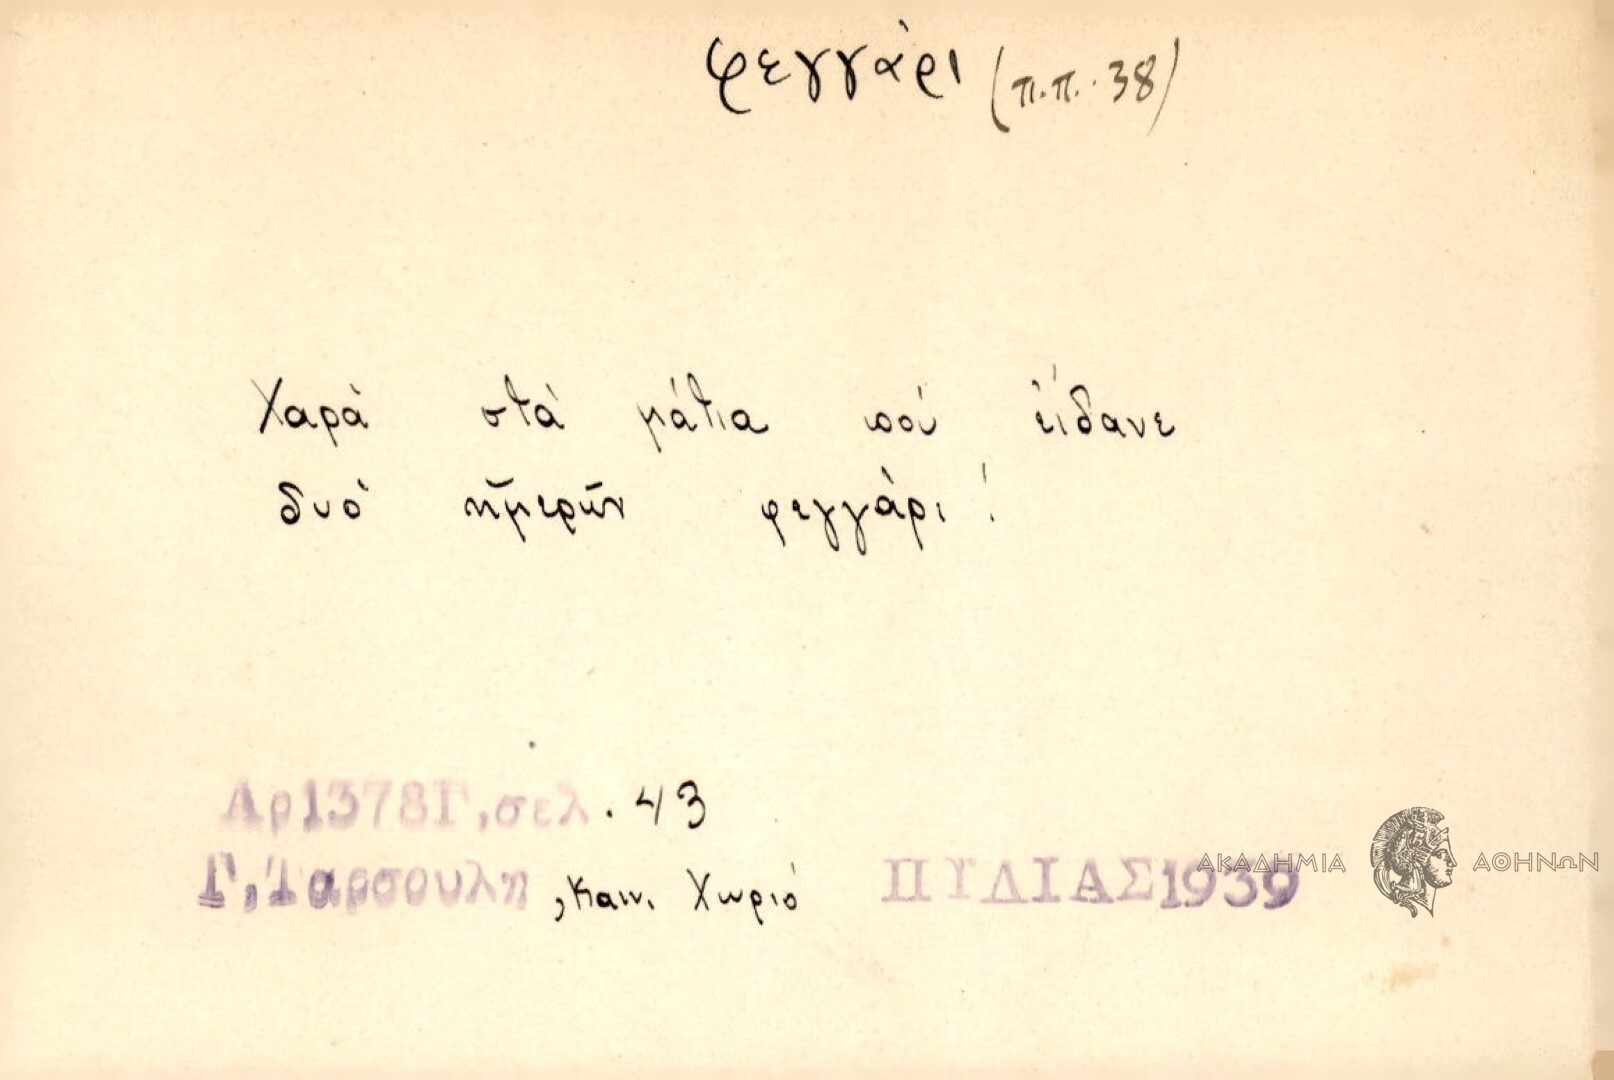 φεγγάρι (π.π. 38)
Χαρὰ στὰ μάτια πού εἴδανε
δυὸ ἡμερῶν φεγγάρι!
Αρ1378Γ,σελ. 43
Γ. Ταρσουλη, Καιν. Χωριό ΠΥΛΙΑΣ1939
ΑΚΑΔΗΜΙΑ ΑΘΗΝΩΝ